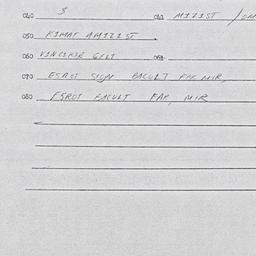 040 $ 041 MIZIST / ORA
050 KIMAT AMIZIST
060 VINCIRIR GELT 061
070 ESROT SIGN BACULT FAK MIR,
080 ESROT BACULT FAK, MIR